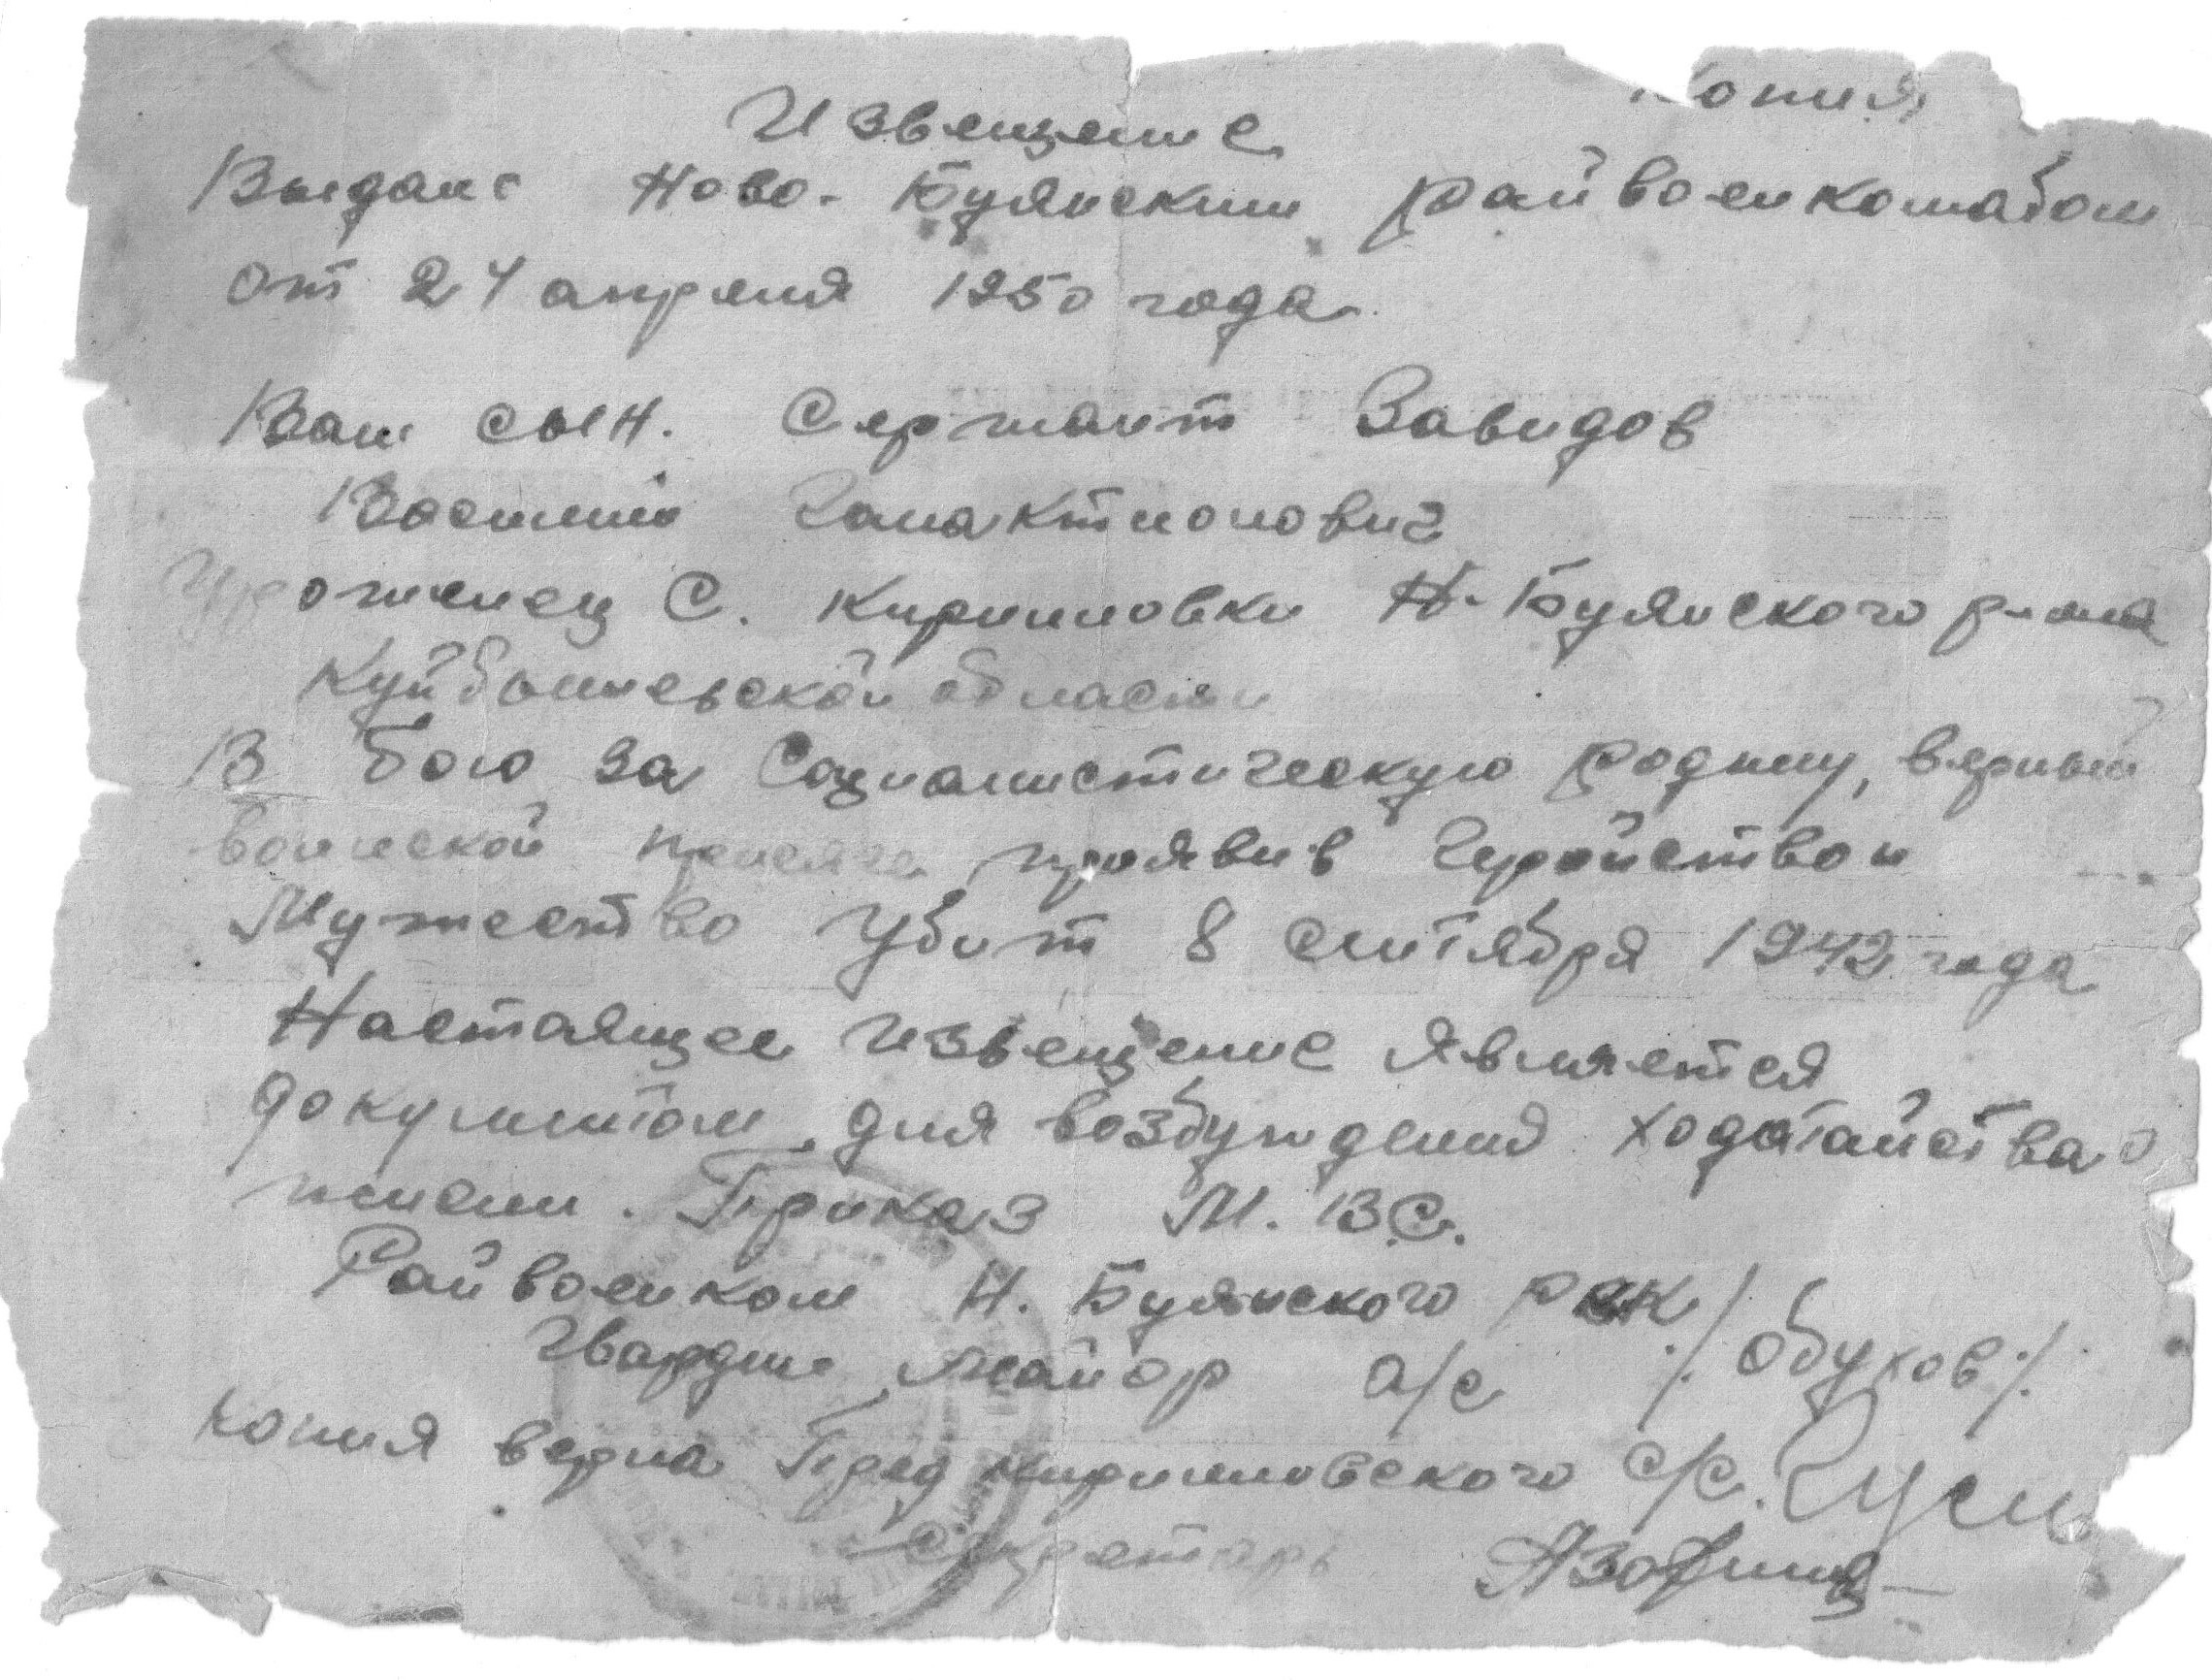 Копия
Извещение
Выдано Ново-Буянским райвоенкоматом
от 24 апреля 1950 года.
Ваш сын. Сержант Завидов
Василий Галактионович
Уроженец С. Кирилловки Н-Буянского р-она
Куйбышевской области
В бою за Социалистическую родину, верный
воинской присяге проявив геройство и
Мужество Убит 8 сентября 1942 года
Настаящее извещение является
документом для возбуждения ходатайства о
пенсии. Приказ М. ВС.
Райвоенком Н. Буянского РВК
Гвардии майор а/с /Обухов/.
копия верна Пред кирилловского с/с.
Секретарь